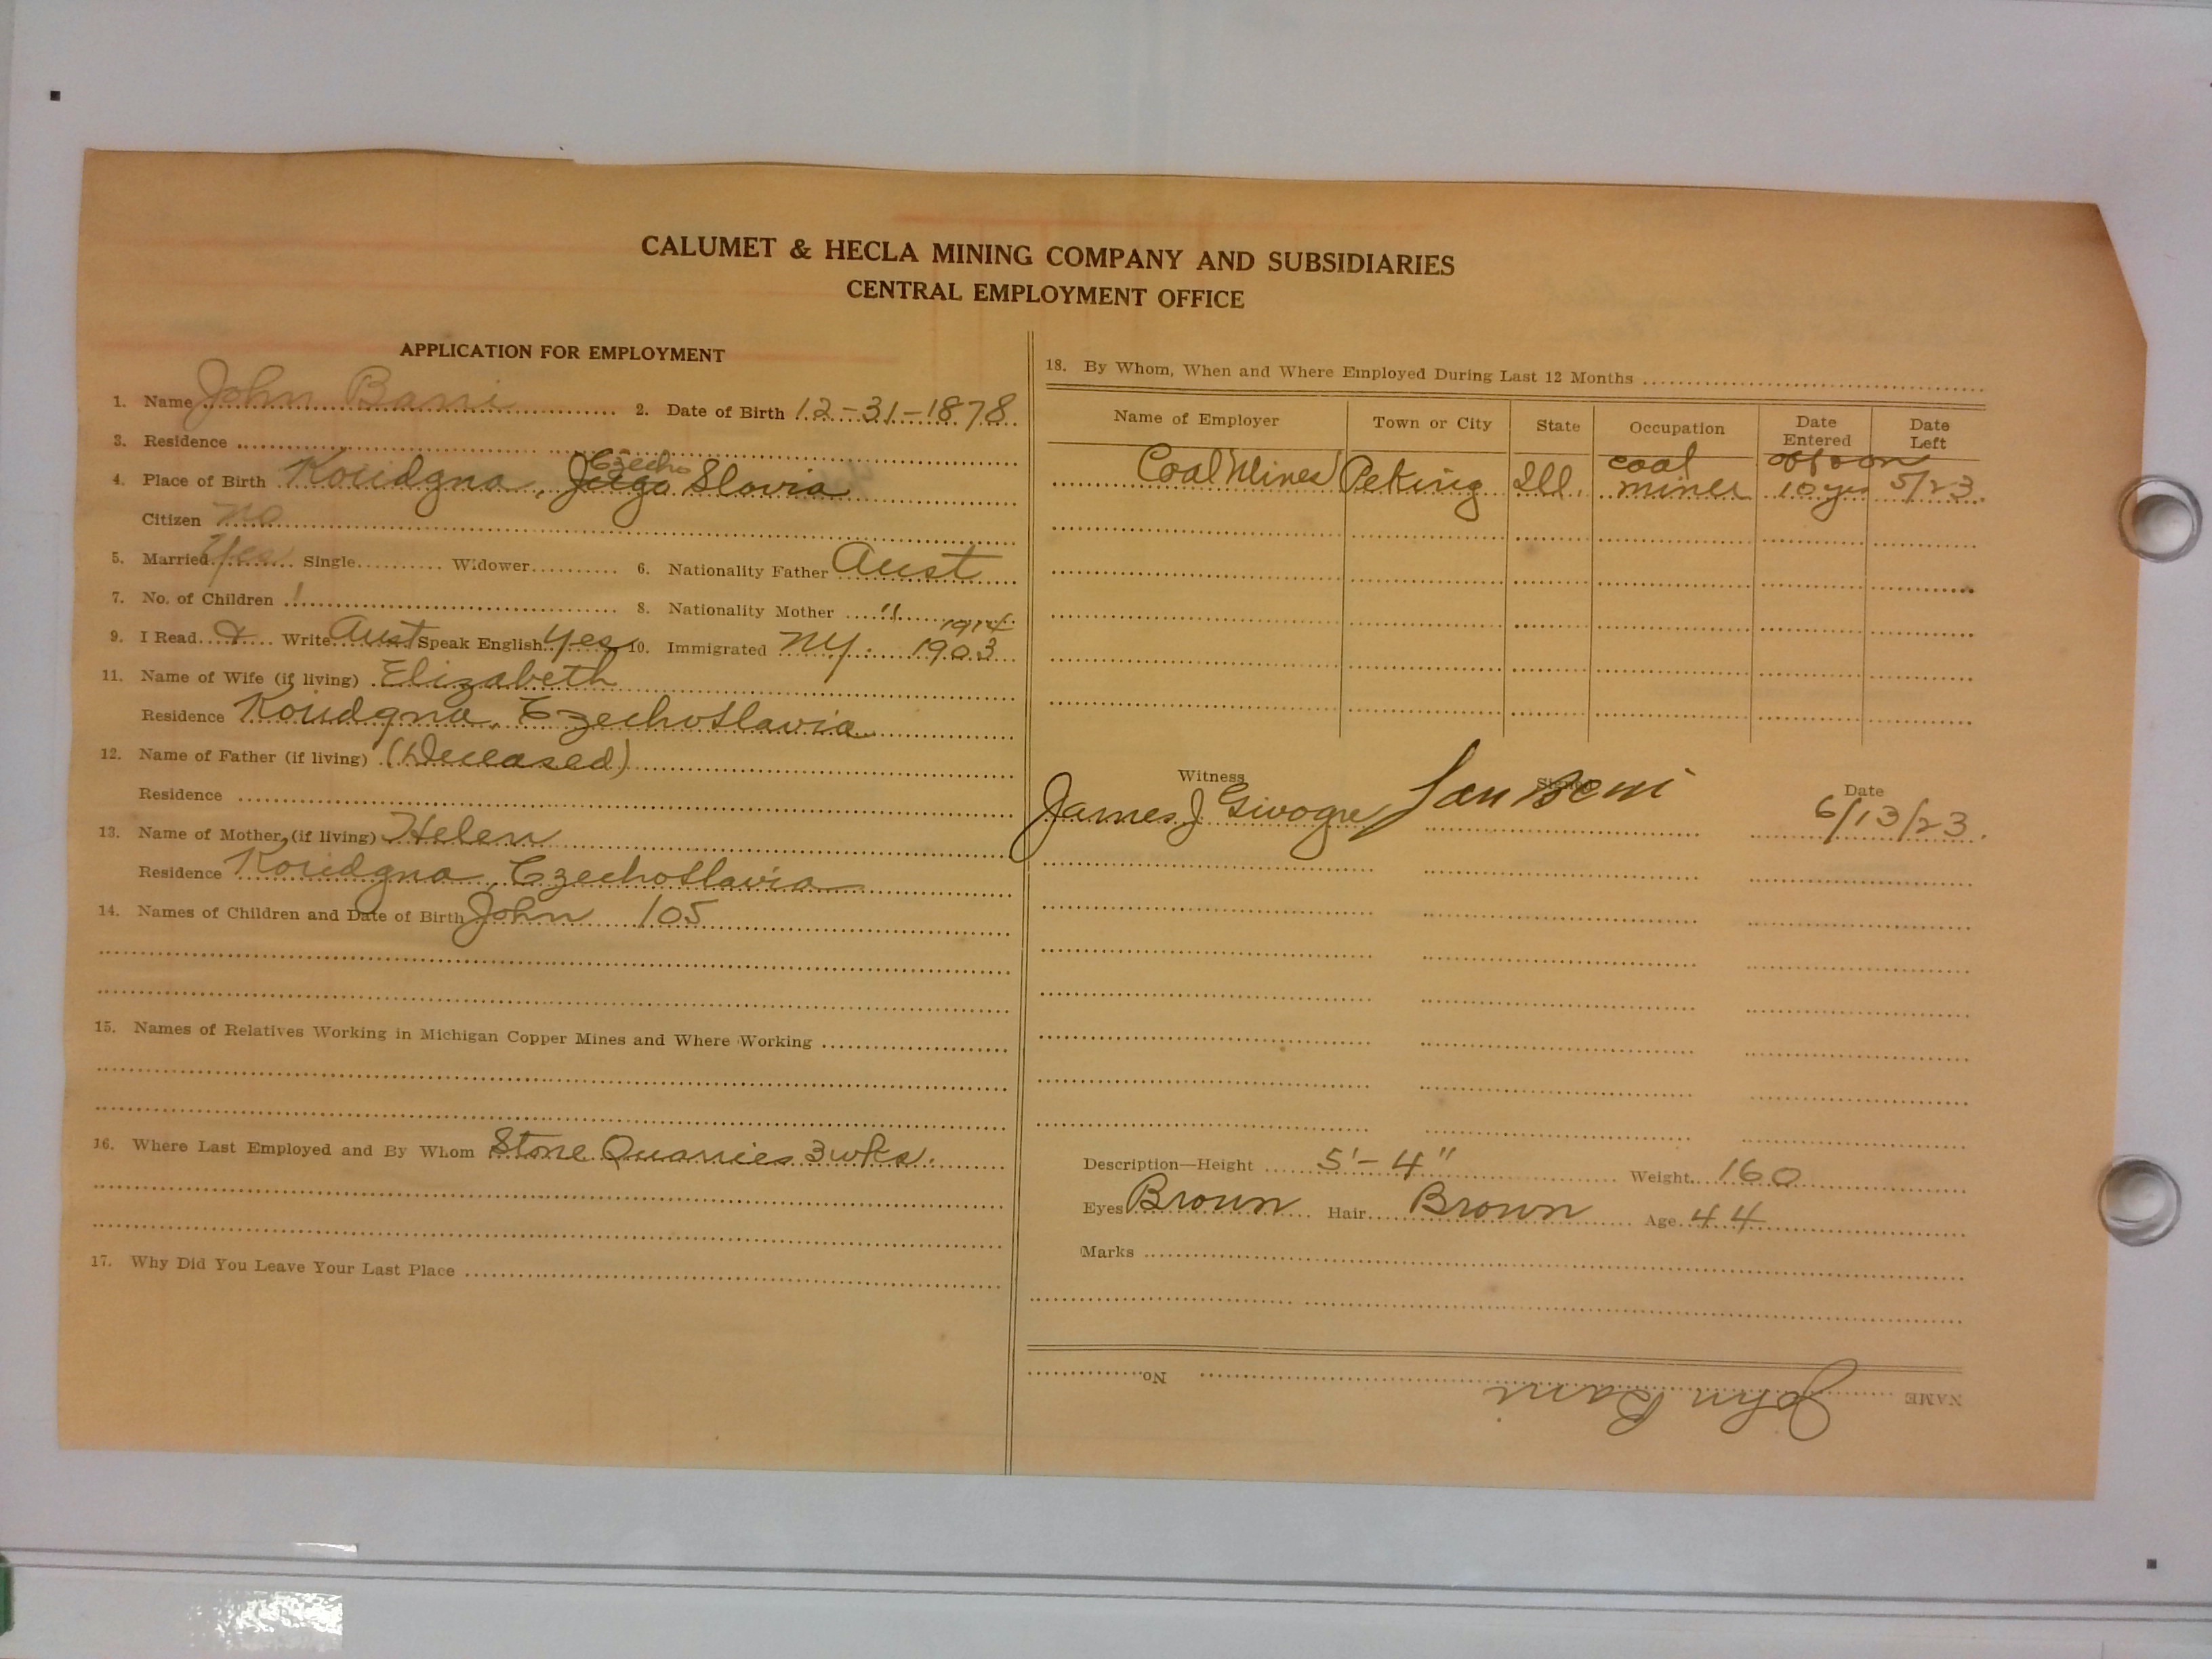 CALUMET & HECLA MINING COMPANY AND SUBSIDIARIES
CENTRAL EMPLOYMENT OFFICE
APPLICATION FOR EMPLOYMENT
1. Name John Bani 2. Date of Birth 12-31-1878
3. Residence
4. Place of Birth Koudgna, Jugo Czecho Slovia
Citizen no
5. Married Yes Single Widower 6. Nationality Father Aust
7. No. of Children 1 8. Nationality Mother "
9. I Read & Write Aust Speak English Yes 10. Immigrated NY. 1903 1914
11. Name of Wife (if living) Elizabeth
Residence Koudgna, Czechoslavia
12. Name of Father (if living) (Deceased)
Residence
13. Name of Mother (if living) Helen
Residence Koudgna, Czechoslavia
14. Names of Children and Date of Birth John 105
15. Names of Relatives Working in Michigan Copper Mines and Where Working
16. Where Last Employed and By Whom Stone Quarries 3 wks.
17. Why Did You Leave Your Last Place
18. By Whom, When and Where Employed During Last 12 Months
Name of Employer Town or City State Occupation Date Entered Date Left
Coal Mines Peking Ill. coal miner off & on 10 yrs 5/23
Witness Signed Date
James J. Givogre Jan Beni 6/13/23.
Description—Height 5'-4" Weight 160
Eyes Brown Hair Brown Age 44
Marks
NAME John Bani No.